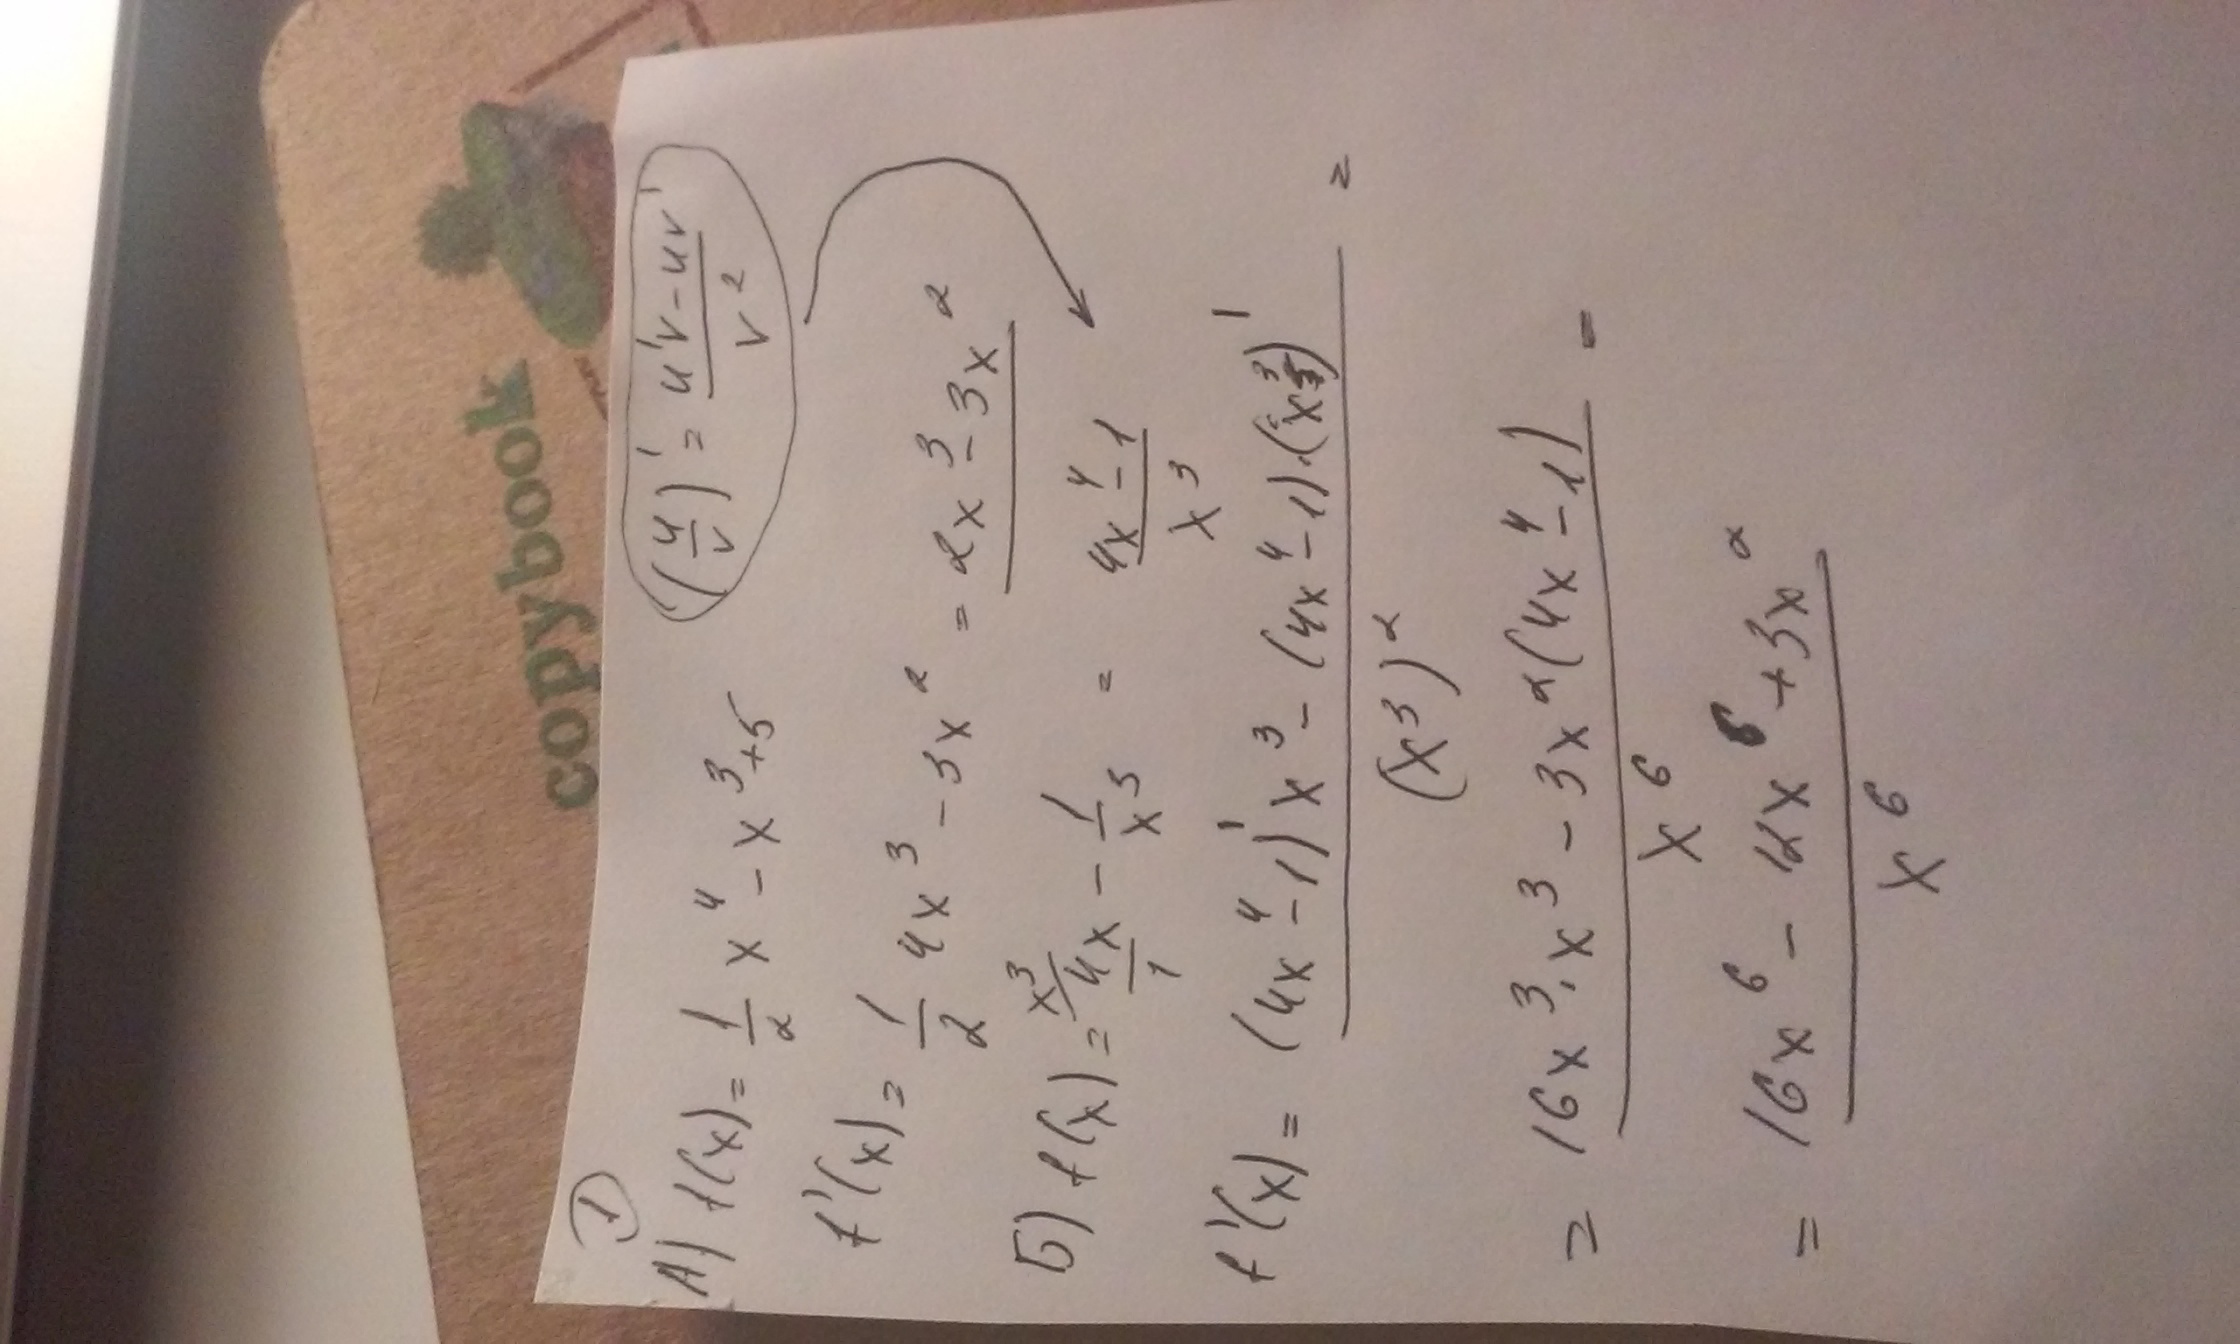 copybook
①
А) f(x) = 1/2 x⁴ - x³ + 5 (u/v)' = u'v - uv' / v²
f'(x) = 1/2 4x³ - 3x² = 2x³ - 3x²
Б) f(x) = x³/ 4x/1 - 1/x³ = 4x⁴ - 1 / x³
f'(x) = (4x⁴ - 1)' x³ - (4x⁴ - 1) · (x³)' / (x³)² =
= 16x³ · x³ - 3x² (4x⁴ - 1) / x⁶ =
= 16x⁶ - 12x⁶ + 3x² / x⁶